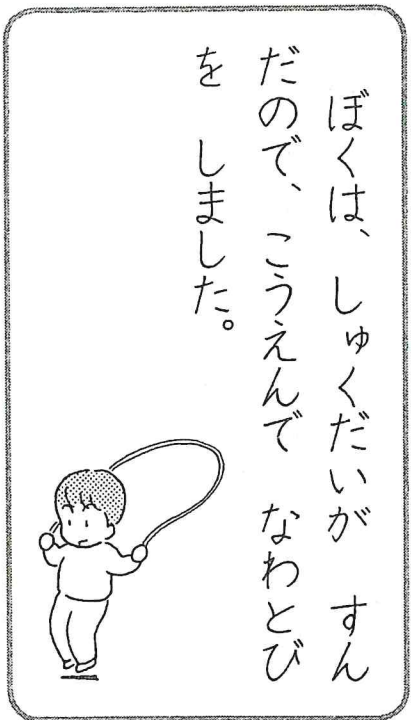 ぼくは、しゅくだいが　すん
だので、こうえんで　なわとび
を　しました。